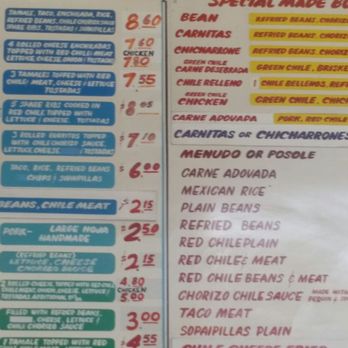 TAMALE, TACO, ENCHILADA, RICE,
REFRIED BEANS, CHILE CHORIZO SAUCE
SPARE RIBS, TOSTADAS / SOPAIPILLAS
8 60
4 ROLLED CHEESE ENCHILADAS
TOPPED WITH RED CHILE, MEAT
LETTUCE, CHEESE, ONION / TOSTADAS
7 60
CHICKEN
7 80
3 TAMALES TOPPED WITH RED
CHILE, MEAT, CHEESE / LETTUCE
TOSTADAS
7 55
5 SPARE RIBS COOKED IN
RED CHILE, TOPPED WITH
LETTUCE / CHEESE. TOSTADAS
$ 8 05
3 ROLLED BURRITOS TOPPED
WITH CHILE CHORIZO SAUCE,
LETTUCE CHEESE / TOSTADAS
$ 7 10
TACO, RICE, REFRIED BEANS
CHIPS / SOPAIPILLAS
$ 6 00
BEANS, CHILE MEAT
$ 2 15
PORK - LARGE HOJA
HANDMADE
$ 2 50
(REFRIED BEANS)
LETTUCE, CHEESE
CHORIZO SAUCE
$ 2 15
2 ROLLED CHEESE, TOPPED WITH RED CHILE
MEAT, ONION, CHEESE, LETTUCE /
TOSTADAS ADDITIONAL
4.80
CHICKEN
5.00
FILLED WITH REFRIED BEANS,
CHEESE, LETTUCE /
CHILE CHORIZO SAUCE
3.00
TAMALE TOPPED WITH RED
$ 4 55
SPECIAL MADE
BEAN REFRIED BEANS, CHORIZO
CARNITAS REFRIED BEANS, CHORIZO
CHICHARRONE REFRIED BEANS, CHORIZO
GREEN CHILE
CARNE DESEBRADA GREEN CHILE, BRISKET
CHILE RELLENO CHILE RELLENOS, REF
GREEN CHILE
CHICKEN GREEN CHILE, CHIC
CARNE ADOVADA PORK, RED CHILE
CARNITAS OR CHICHARRONES
MENUDO OR POSOLE
CARNE ADOVADA
MEXICAN RICE
PLAIN BEANS
REFRIED BEANS
RED CHILE PLAIN
RED CHILE & MEAT
RED CHILE BEANS & MEAT
CHORIZO CHILE SAUCE MADE WITH
TACO MEAT
SOPAIPILLAS PLAIN
CHILE CHEESE FRIES